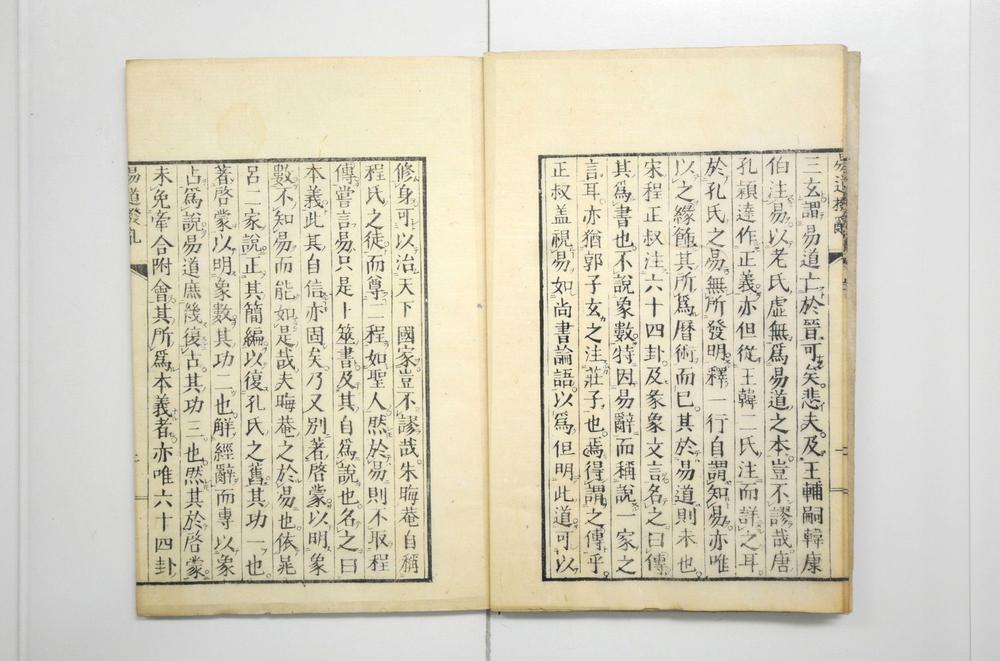 三玄謂易道亡於晉可矣悲夫及王輔嗣韓康
伯注易以老氏虛無爲易道之本豈不謬哉唐
孔穎達作正義亦但從王韓二氏注而詳之耳
於孔氏之易無所發明釋一行自謂知易亦唯
以之緣飾其所爲曆術而已其於易道則未也
宋程正叔注六十四卦及彖象文言名之曰傳
其爲書也不說象數特因易辭而稱說一家之
言耳亦猶郭子玄之注莊子也焉得謂之傳乎
正叔蓋視易如尚書論語以爲但明此道可以
修身可以治天下國家豈不謬哉朱晦菴自稱
程氏之徒而尊二程如聖人然於易則不取程
傳嘗言易只是卜筮書及其自爲說也名之曰
本義此其自信亦固矣乃又別著啓蒙以明象
數不知易而能如是哉夫晦菴之於易也依晁
呂二家說正其簡編以復孔氏之舊其功一也
著啓蒙以明象數其功二也解經辭而專以象
占爲說易道庶幾復古其功三也然其於啓蒙
未免牽合附會其所爲本義者亦唯六十四卦
易道撥亂